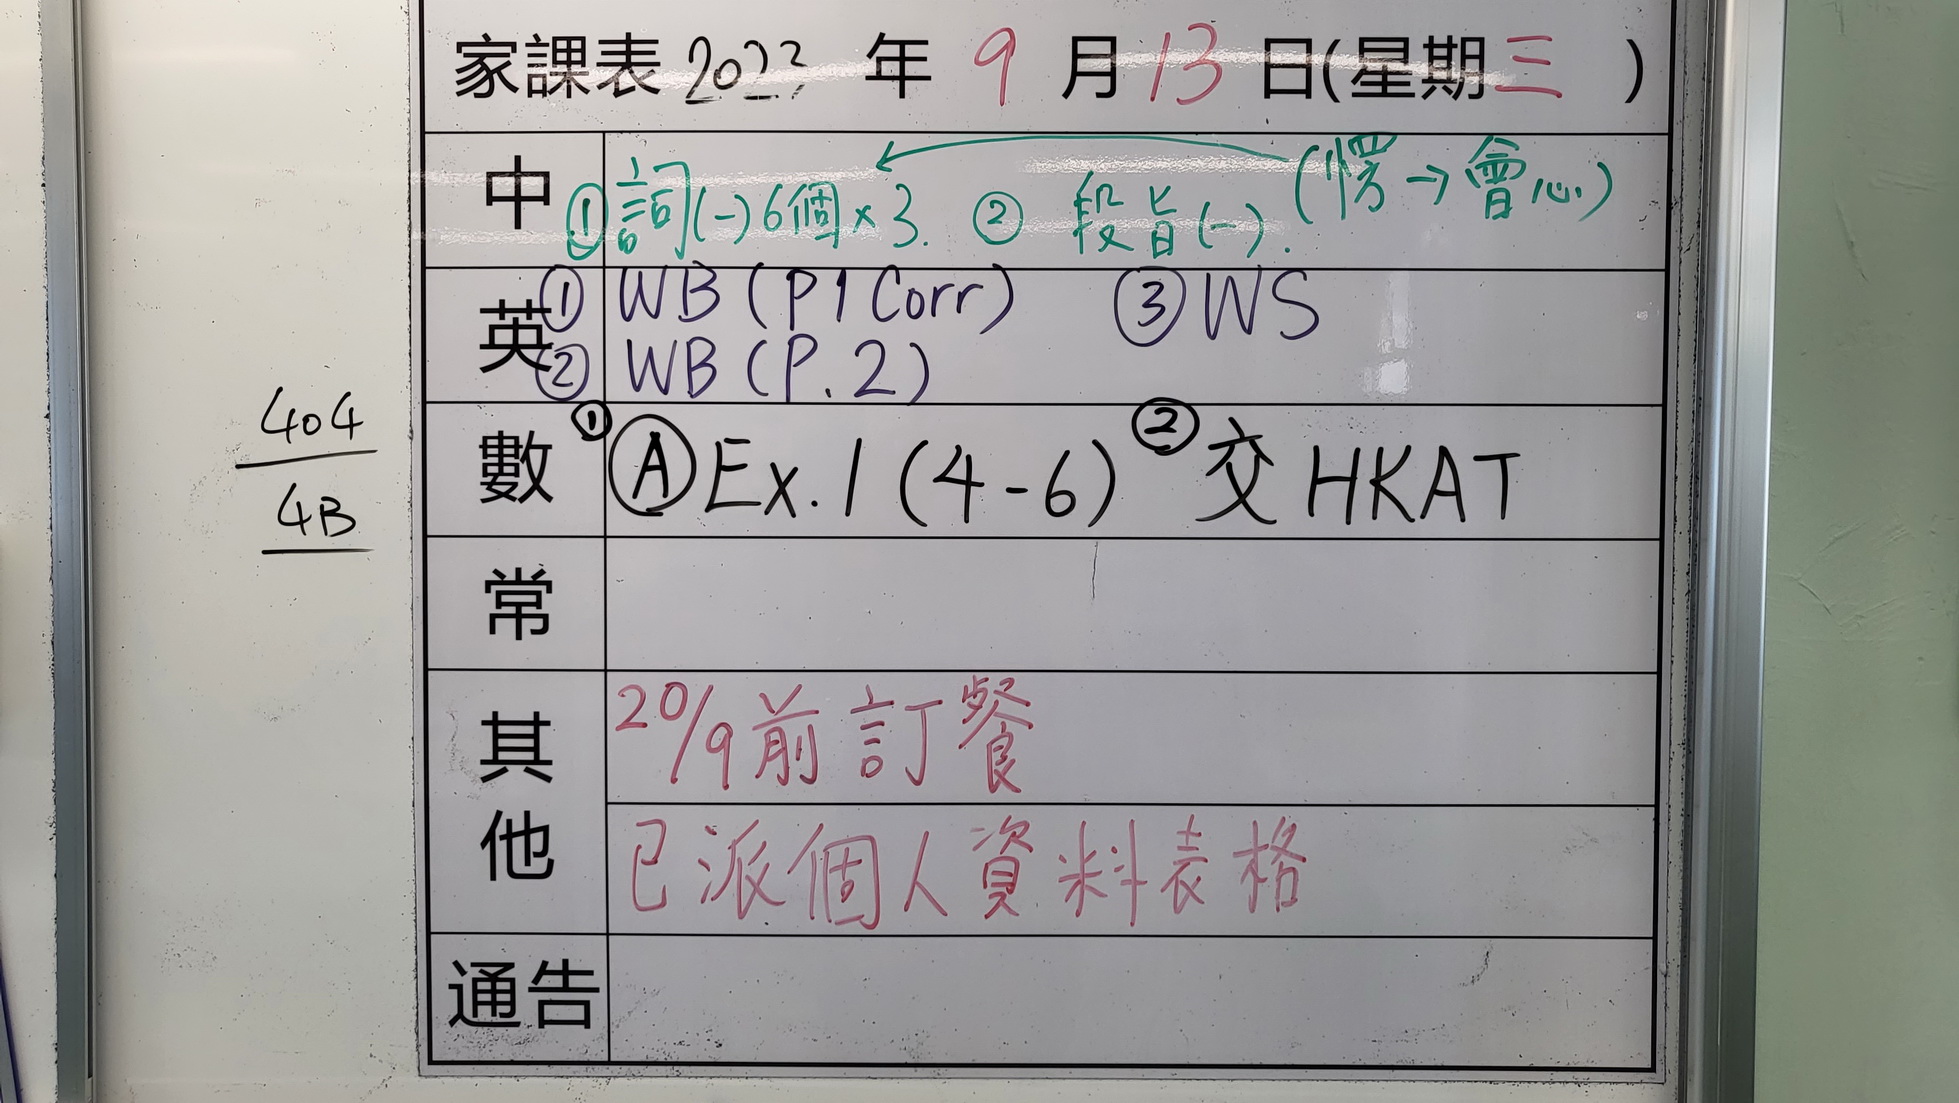 家課表 2023 年 9 月 13 日(星期三)
中 ① 詞(一)6個×3. ② 段旨(一). (愣→會心)
英 ① WB (P1 Corr) ③ WS
② WB (P.2)
404
4B
數 ① Ⓐ Ex.1 (4-6) ② 交 HKAT
常
其他
20/9前訂餐
已派個人資料表格
通告